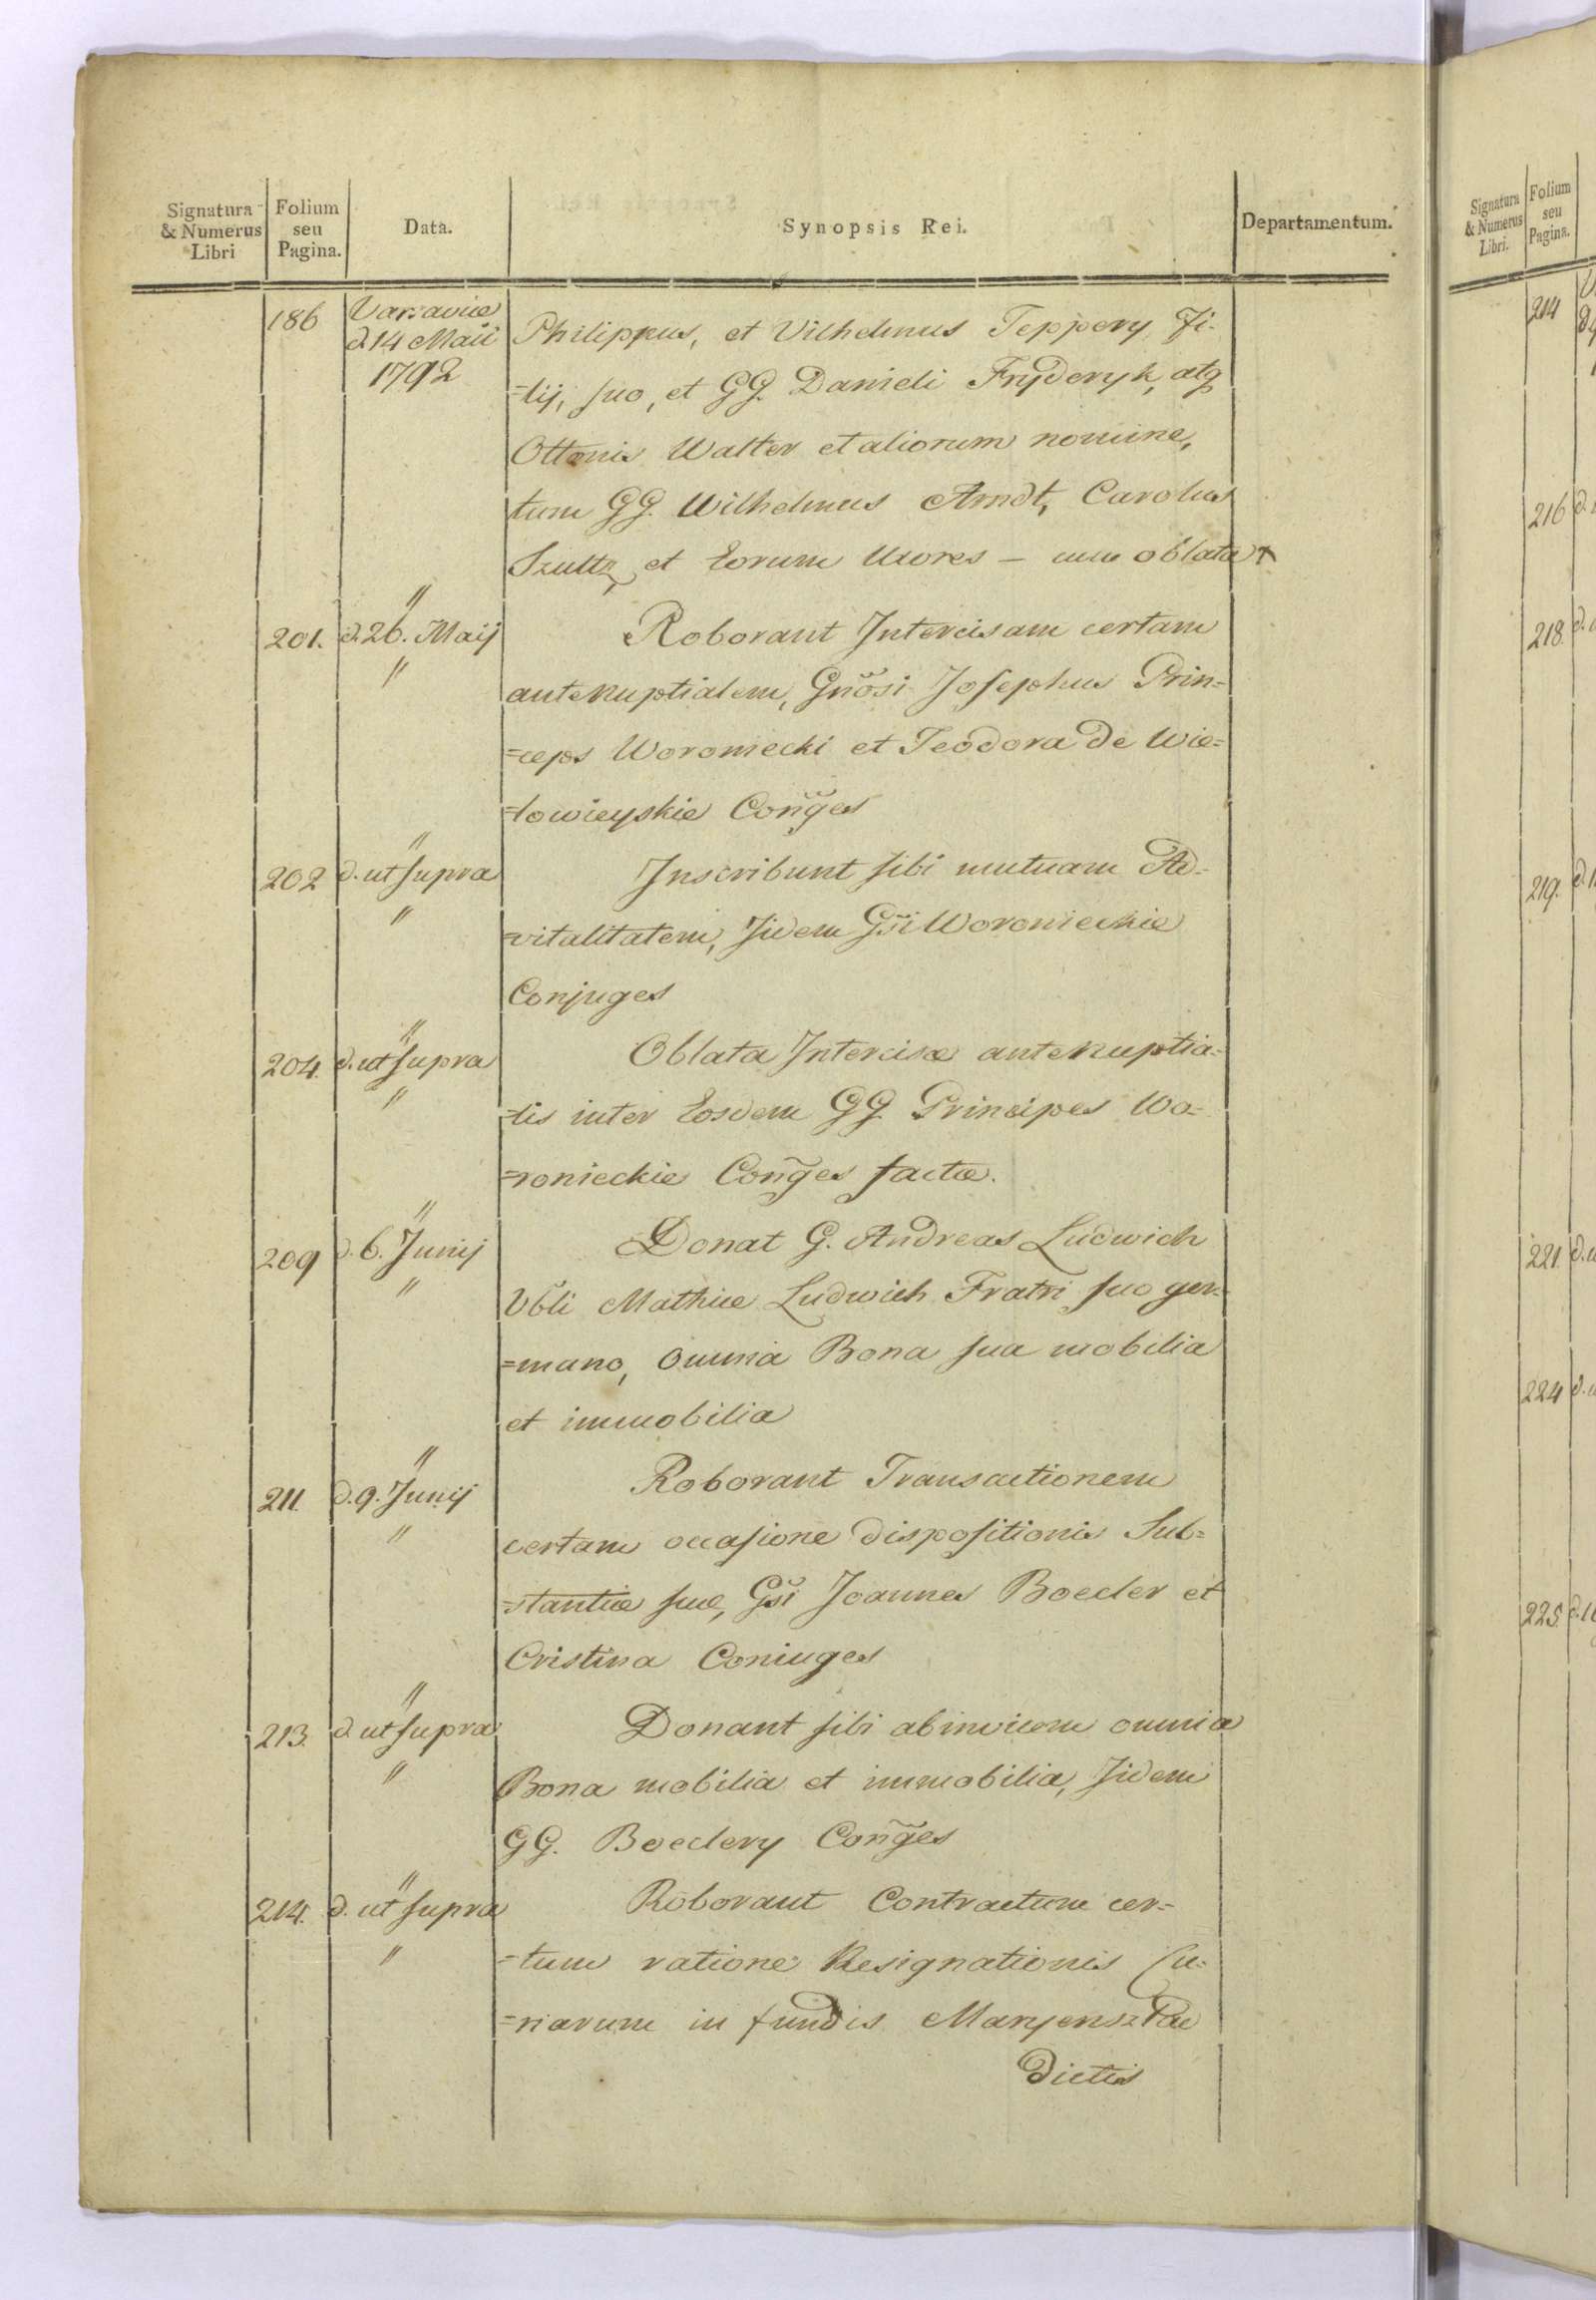 Signatura & Numerus Libri
Folium seu Pagina.
Data.
Synopsis Rei.
Departamentum.
186 Varsaviæ d. 14 Maii 1792
Philippus, et Vilhelmus Teppery Fi-
=lij, suo, et GG. Danieli Fryderyk, atq
Ottonis Walter et aliorum nomine,
tum GG. Wilhelmus Arndt, Carolus
Szultz, et Eorum Uxores – cum oblata +
201. " d. 26. Maij "
Roborant Intercisam certam
antenuptialem, Gnõsi Josephus Prin=
=ceps Woroniecki et Teodora de Wie=
=lowieyskie Coñges
202 " d. ut supra "
Inscribunt sibi mutuam Ad-
=vitalitatem, Iidem Gsi Woronieckie
Conjuges
204. " d. ut supra "
Oblata Intercisæ antenuptia=
=lis inter Eosdem GG. Principes Wo=
=ronieckie Coñges factæ.
209 " d. 6. Junij "
Donat G. Andreas Ludwich
Vbli Mathiæ Ludwich Fratri suo ger=
=mano, omnia Bona sua mobilia
et immobilia
211. " d. 9. Junij "
Roborant Transactionem
certam occasione dispositionis Sub=
=stantiæ suæ, Gsi Joannes Boecler et
Cristina Coniuges
213. " d. ut supra "
Donant sibi abinvicem omnia
Bona mobilia et immobilia, Iidem
GG. Boeclery Coñges
214. " d. ut supra "
Roborant Contractum cer=
=tum ratione Resignationis Cu=
=riarum in fundis Maryensztac
dictis
Signatura & Numerus Libri.
Folium seu Pagina.
214
216
218.
219.
221.
224
225.